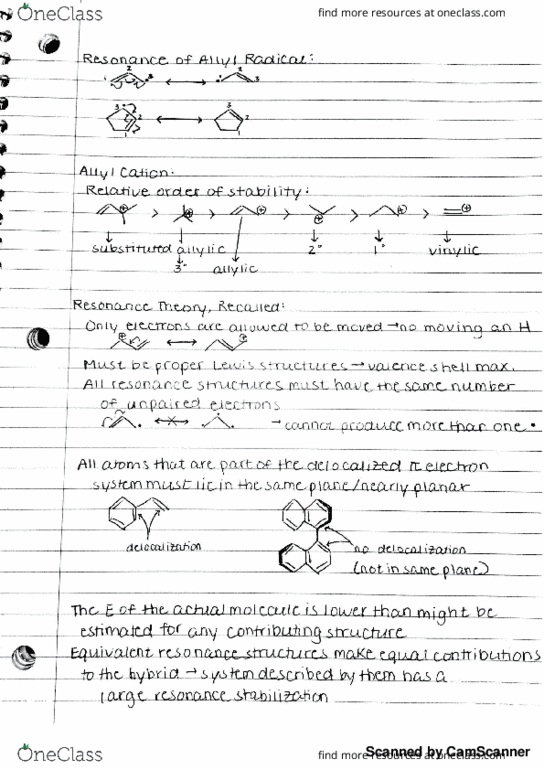 OneClass
find more resources at oneclass.com
Resonance of Allyl Radical:
1 2 3 ⟷ 1 2 3
3 2 1 ⟷ 3 2 1
Allyl Cation:
Relative order of stability:
⊕ > ⊕ > ⊕ > ⊕ > ⊕ > ⊕
substituted allylic 2° 1° vinylic
3° allylic
Resonance Theory, Recalled:
Only electrons are allowed to be moved → no moving an H
⊕ ⟷ ⊕
Must be proper Lewis structures → valence shell max.
All resonance structures must have the same number
of unpaired electrons
→ cannot produce more than one •
All atoms that are part of the delocalized π electron
system must lie in the same plane/nearly planar
delocalization no delocalization
(not in same plane)
The E of the actual molecule is lower than might be
estimated for any contributing structure
Equivalent resonance structures make equal contributions
to the hybrid → system described by them has a
large resonance stabilization
OneClass
find more resources at oneclass.com
Scanned by CamScanner